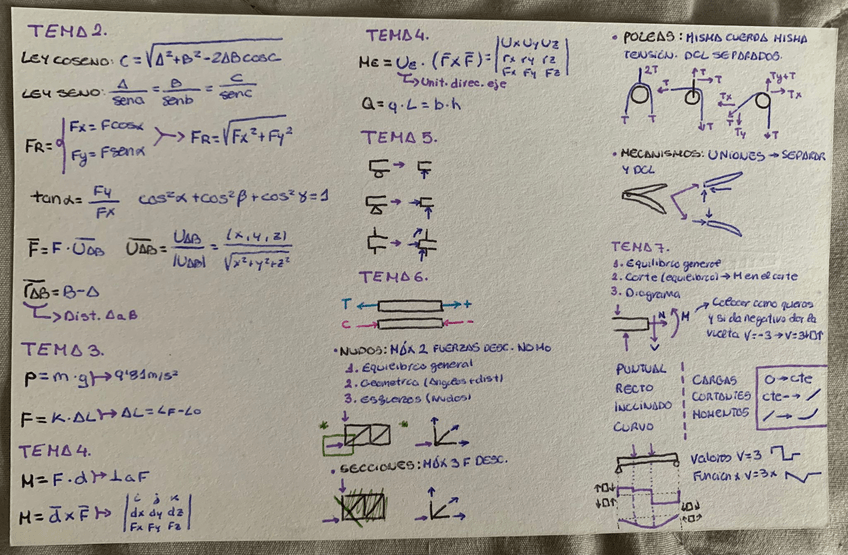 TEMA 2.
LEY COSENO: C = √A²+B²-2ABcosC
LEY SENO: A/sena = B/senb = C/senc
FR= { Fx = Fcosα
Fy = Fsenα → FR = √Fx²+Fy²
tanα = Fy/Fx cos²α + cos²β + cos²γ = 1
F̄ = F · ŪAB ŪAB = UAB/|UAB| = (x, y, z)/√x²+y²+z²
r̄AB = B - A
↳ Dist. A a B
TEMA 3.
P = m · g → 9'81 m/s²
F = K · ΔL → ΔL = LF - L0
TEMA 4.
M = F · d → ⊥ a F
M = d̄ x F̄ → | i j k
dx dy dz
Fx Fy Fz |
TEMA 4.
Me = Ūe · (r̄ x F̄) = | Ux Uy Uz
rx ry rz
Fx Fy Fz |
↳ Unit. direc. eje
Q = q · L = b · h
TEMA 5.
TEMA 6.
T +
C -
• NUDOS: MÁX 2 FUERZAS DESC. NO MO
1. Equilibrio general
2. Geometría (Ángulos + dist)
3. Esfuerzos (Nudos)
* *
• SECCIONES: MÁX 3 F DESC.
• POLEAS: MISMA CUERDA MISMA
TENSIÓN. DCL SEPARADOS.
2T T T
T T
T T T
Ty+T Tx
Tx T Ty T
• MECANISMOS: UNIONES → SEPARAR
Y DCL
TEMA 7.
1. Equilibrio general
2. Corte (equilibrio) → M en el corte
3. Diagrama
N M V
Colocar como quieras
y si da negativo dar la
vuelta V=-3 → V=3
PUNTUAL
RECTO
INCLINADO
CURVO
CARGAS
CORTANTES
MOMENTOS
0 → cte
cte →
Valores V=3
Función x V=3x